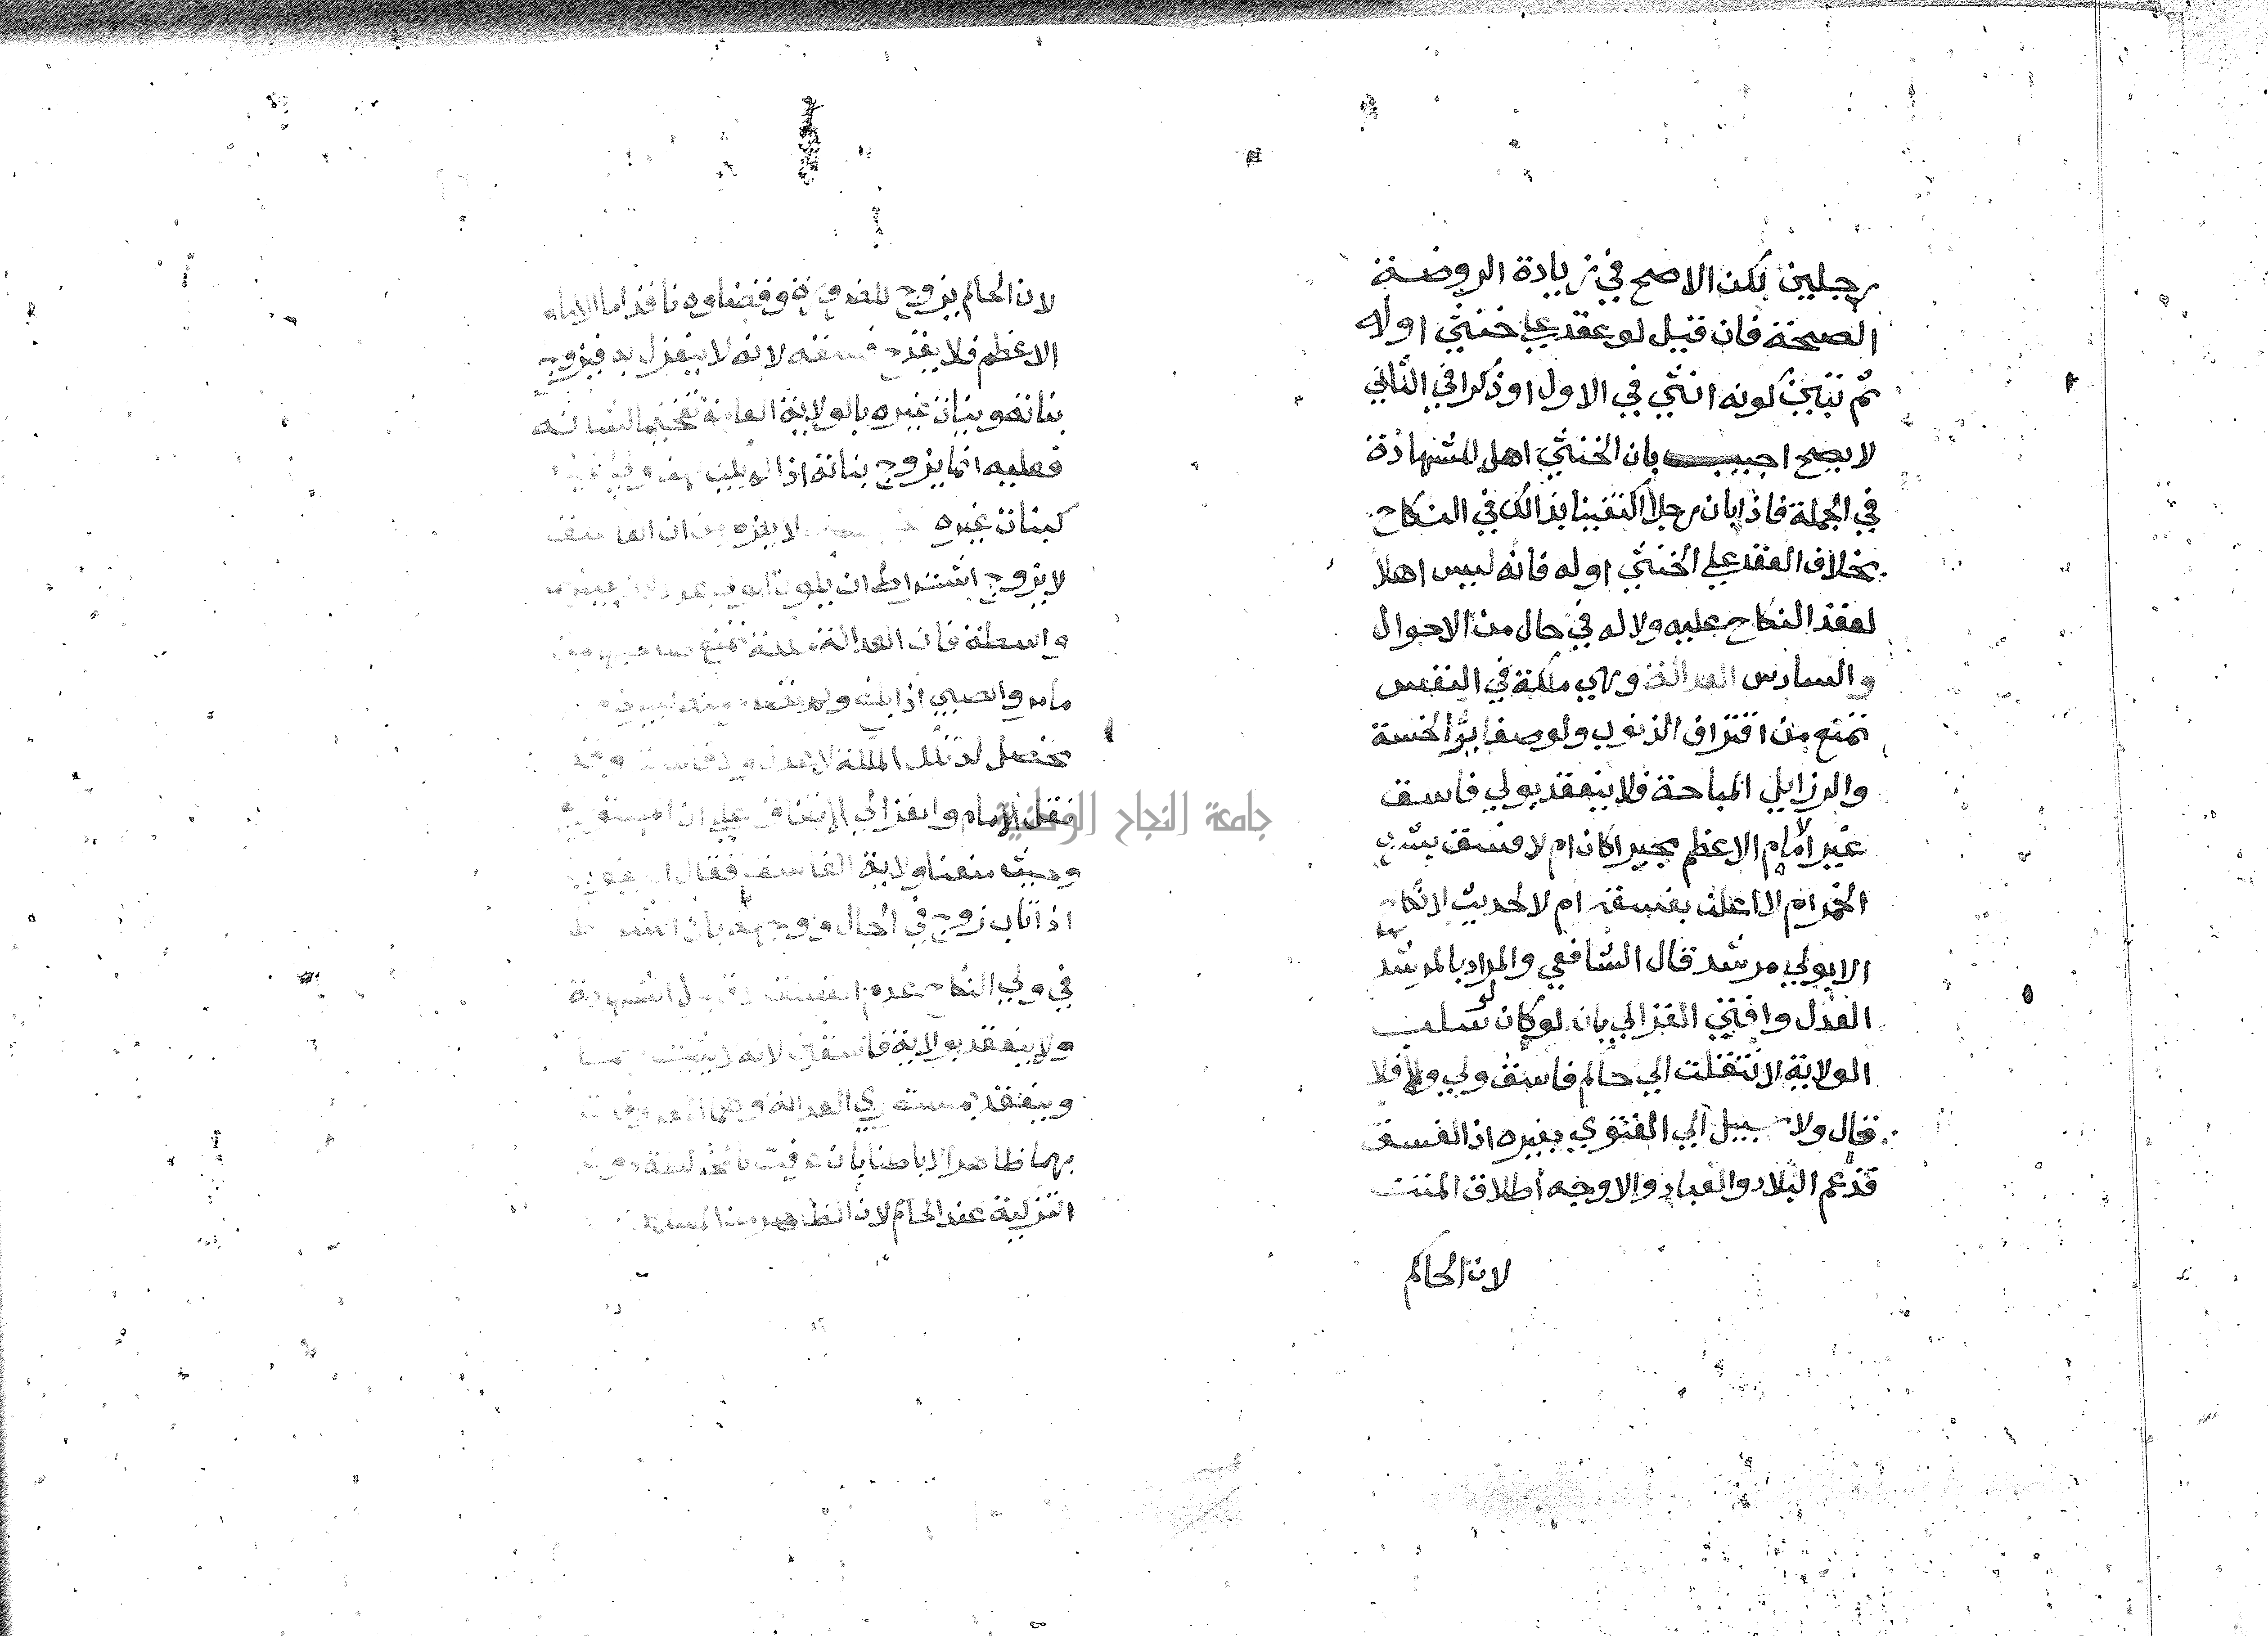 رجلين لكن الاصح في زيادة الروضة
الصحة فان قيل لو عقد علي خنثي اوله
ثم تبين كونه انثي في الاول اوذكرا في الثاني
لا يصح اجيب بان الخنثي اهل للشهادة
في الجملة فاذا بان رجلا اكتفينا بذالك في النكاح
بخلاف العقد علي الخنثي اوله فانه ليس اهلا
لعقد النكاح عليه ولا له في حال من الاحوال
والسادس العدالة وهي ملكة في النفس
تمنع من اقتراف الذنوب ولو صغاير الخسة
والرزايل المباحة فلا ينعقد بولي فاسق
غير الامام الاعظم مجبرا كان ام لا فسق بشرب
الخمر ام لا اعلن بفسقه ام لا لحديث لا نكاح
الا بولي مرشد قال الشافعي والمراد بالمرشد
العدل وافتي الغزالي بانه لو كان لو سلب
الولاية لانتقلت الي حاكم فاسق ولي والا فلا
قال ولا سبيل الي الفتوي بغيره اذ الفسق
قد عم البلاد والعباد والاوجه اطلاق المتن
لان الحاكم
لان الحاكم يزوج للضرورة وقضاوه نافذ اما الامام
الاعظم فلا يقدح فسقه لانه لا ينعزل به فيزوج
بناته وبنات غيره بالولاية العامة تفخيما لشانه
فعليه انما يزوج بناته اذا لم يكن لهن ولي غيره
كبنات غيره لا يلزم من ان الفاسق
لا يزوج اشتراط ان يكون الولي عدلا
واسطة فان العدالة ملكة تمنع صاحبها مما
مر والصبي اذا بلغ ولم
تحصل له تلك الملكة لا عدل ولا فاسق وقد
نقل الامام والغزالي الاتفاق علي ان المستور
وحيث منعنا ولاية الفاسق فقال البغوي
اذا تاب زوج في الحال ووجهه بان الشرط
في ولي النكاح عدم الفسق لا قبول الشهادة
ولا ينعقد بولاية فاسقين لانه لا يثبت بهما
وينعقد بمستوري العدالة وهما المعروفان
بهما ظاهرا لا باطنا بان عرفت بالمخالطة دون
التزكية عند الحاكم لان الظاهر من المسلمين
جامعة النجاح الوطنية